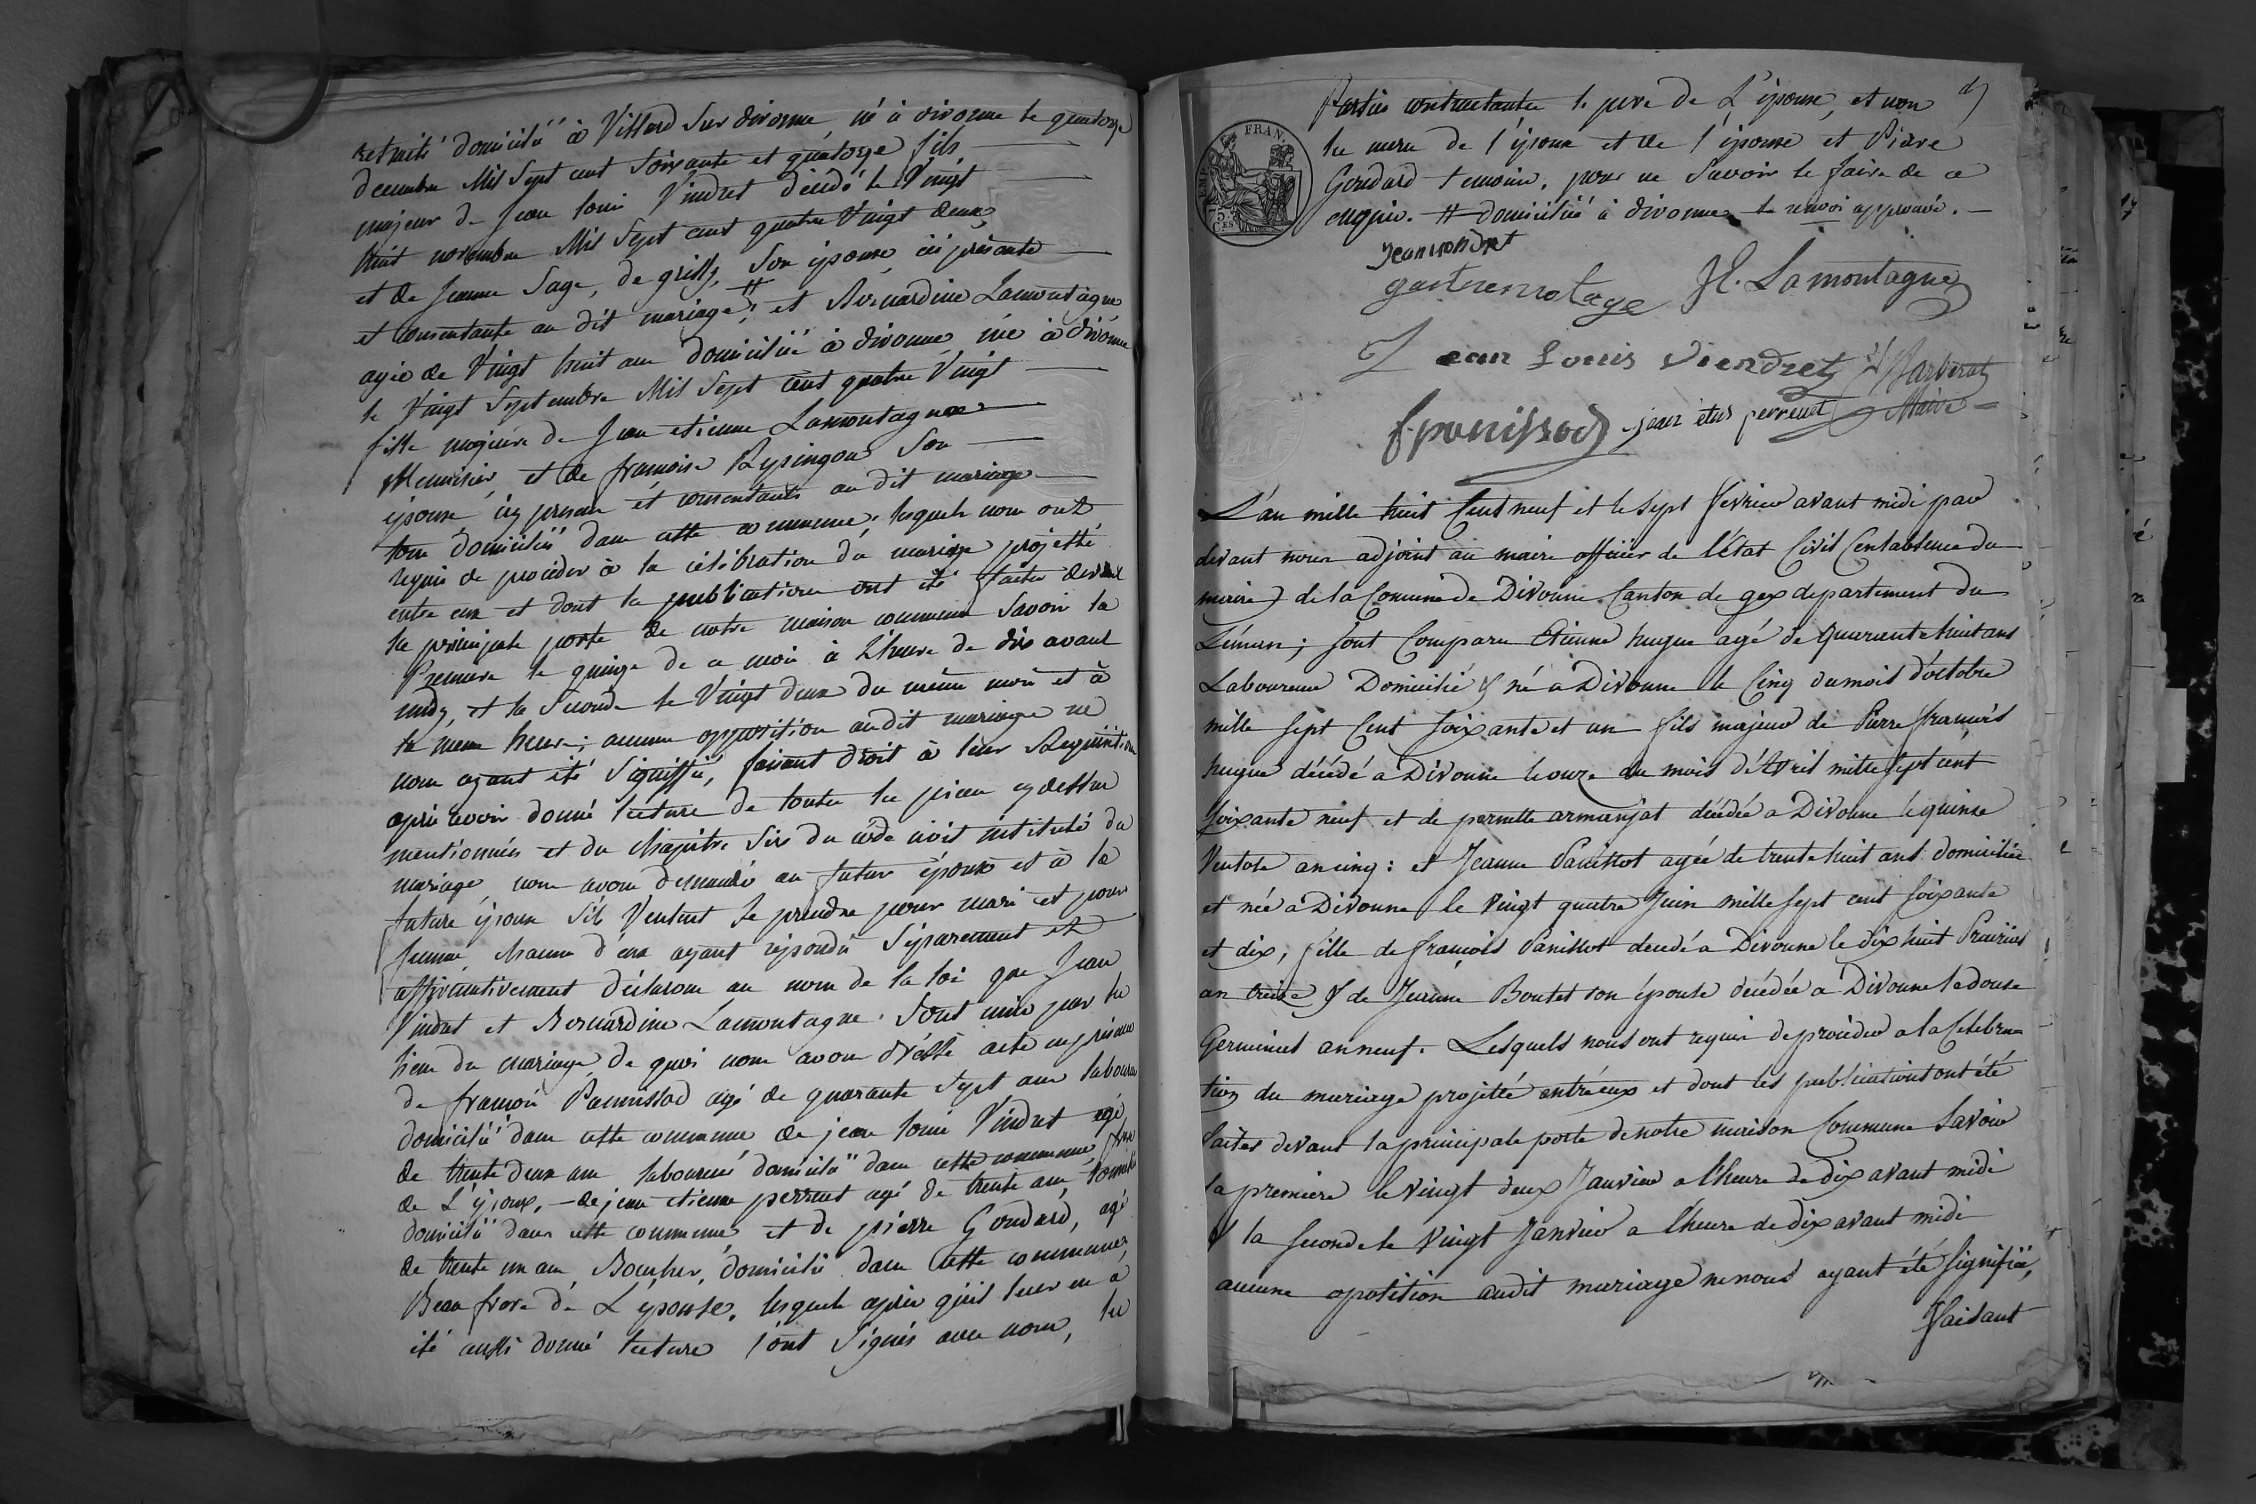 retraité domicilié à Villard sur divonne, né à divonne le quatorze
decembre Mil Sept cent Soixante et quatorze fils
majeur de Jean louis Vindret décédé le Vingt
huit novembre Mil Sept cent quatre Vingt deux,
et de Jeanne Sage, de grilly, Son épouse, ici présente
et Consentante au dit mariage; # et Bernardine Lamontagne
agée de Vingt huit ans domiciliée à divonne née à divonne
le Vingt Septembre Mil Sept cent quatre Vingt
fille majeure de Jean etienne Lamontagne
Menuisier, et de françoise Rysingou Son
épouse icy present et consentants au dit mariage
tous domiciliés dans cette commune; lesquels nous ont
requis de procéder à la célébration du mariage projetté
entre eux et dont les publications ont été faites devant
la principale porte de notre maison commune Savoir la
Premiere le quinze de ce mois à L'heure de dix avant
midy, et la Seconde le Vingt deux du même mois et à
la meme heure; aucune opposition audit mariage ne
nous ayant été Signiffié, faisant droit à leur Requisition
après avoir donné lecture de toutes les pieces cy dessus
mentionnées et du chapitre Six du code civil intitulé du
mariage, nous avons demandé au futur époux et à la
future épouse S'ils Veulent Se prendre pour mari et pour
femme, chacun d'eux ayant répondu Séparement et
affirmativement déclarons au nom de la loi que Jean
Vindret et Bernardine Lamontagne Sont unis par les
liens du mariage, de quoi nous avons dréssé acte en présence
de françois Panissod agé de quarante Sept ans laboureur
domicilié dans cette commune de jean louis Vindret agé
de trente deux ans laboureur domicilié dans cette commune, frere
de L'époux, - de jean etienne perrent agé de trente ans,
domicilié dans cette commune et de pierre Goudard, agé
de trente un ans, Boucher, domicilié dans Cette commune,
Beau frere de L'épouse, lesquels après qu'il leur en a
été aussi donné lecture l'ont Signés avec nous, les
Parties contractantes le pere de L'épouse, et non
les meres de l'époux et de l'épouse et Pierre
Goudard temoin, pour ne Savoir le faire de ce
enquis. # domiciliée à divonne le renvoi approuvé.
IMP. FRAN.
75 Ces
Jean vindret
JE. Lamontagne
Jean Louis Viendret
Barberat
Maire
f panissod
jean etne perreent
L'an mille huit Cent neuf et le sept fevrier avant midi par
devant nous adjoint au maire officier de l'état Civil (en l'absence du
maire) de la Comune de Divonne Canton de gex departement du
Léman; sont Comparu Etienne hugue agé de quarante huit ans
Laboureur Domicilié & né a Divonne le Cinq du mois d'octobre
mille sept Cent soixante et un fils majeur de Pierre françois
hugue décédé a Divonne le onze du mois d'Avril mille sept cent
soixante neuf et de pernette armanjat décédée a Divonne le quinse
Ventose an cinq: et Jeanne Panissot agée de trente huit ans domiciliée
et née a Divonne le vingt quatre Juin mille sept cent soixante
et dix, fille de françois Panissot decedé a Divonne le dix huit Prairial
an treise & de Jeanne Boutet son épouse décédée a Divonne le douse
Germinal an neuf. Lesquels nous ont requis de procéder a la Célébra
tion du mariage projetté entr'eux et dont les publications ont été
faites devant la principale porte de notre maison Commune Savoir
la premiere le vingt deux Janvier a l'heure de dix avant midi
& la seconde le vingt Janvier a l'heure de dix avant midi
aucune opotition audit mariage ne nous ayant été signifiée,
faisant